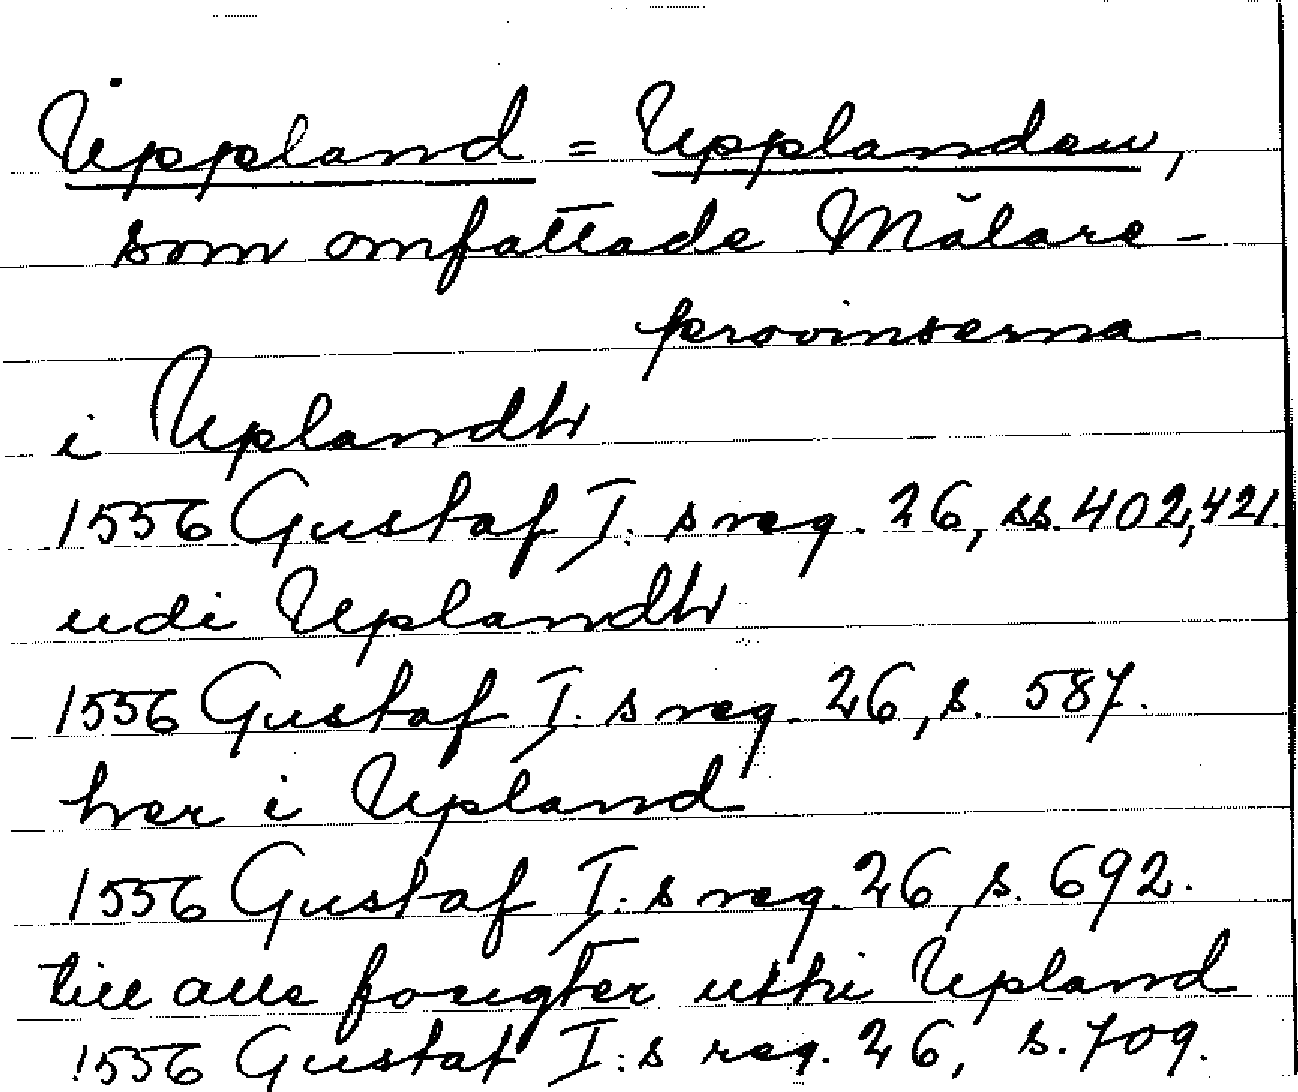 Uppland = Upplanden,
som omfattade Mälare-
provinserna
i Uplandh
1556 Gustaf I:s reg. 26, ss. 402, 421.
udi Uplandh
1556 Gustaf I:s reg. 26, s. 587.
her i Upland
1556 Gustaf I:s reg. 26, s. 692.
till alle fougter uthi Upland
1556 Gustaf I:s reg. 26, s. 709.